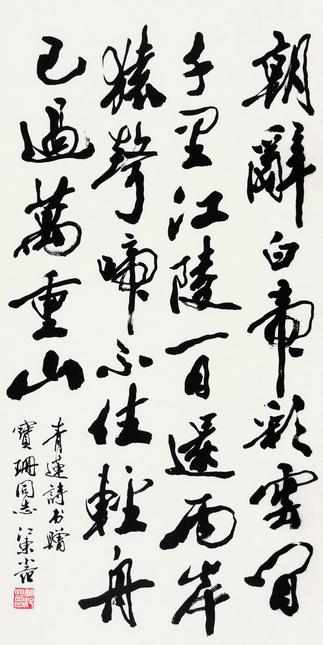 朝辭白帝彩雲間
千里江陵一日還兩岸
猿聲啼不住輕舟
已過萬重山
青蓮詩书贈
寶珊同志 江東